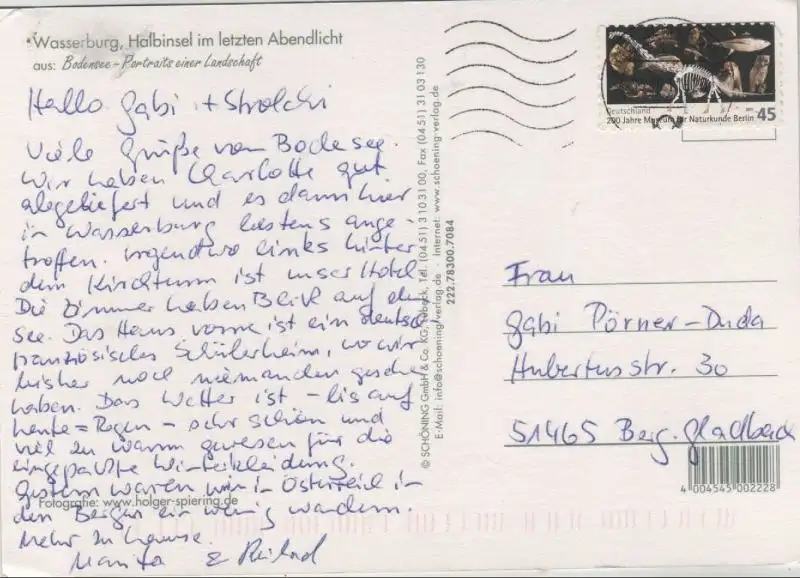 Wasserburg, Halbinsel im letzten Abendlicht
aus: Bodensee – Portraits einer Landschaft
Hallo Gabi + Strolchi
Viele Grüße vom Bodesee.
Wir haben Charlotte gut
abgeliefert und es dann hier
in Wasserburg bestens ange-
troffen. Irgendwo links hinter
dem Kirchturm ist unser Hotel
Die Zimmer haben Blick auf den
See. Das Haus vorne ist ein deutsch
französisches Schülerheim, wo wir
bisher noch niemanden gesehen
haben. Das Wetter ist – bis auf
heute = Regen – sehr schön und
viel zu warm gewesen für die
eingepackte Winterkleidung.
Gestern waren wir in Österreich in
den Bergen ein wenig wandern.
Mehr zu Hause.
Marita &
Fotografie: www.holger-spiering.de
© SCHÖNING GmbH & Co. KG, Lübeck, Tel. (0451) 310 31 00, Fax (0451) 31 03 130
E-Mail: info@schoening-verlag.de · Internet: www.schoening-verlag.de
222.78300.7084
Deutschland
200 Jahre Museum für Naturkunde Berlin 45
Frau
Gabi Pörner-Duda
Hubertusstr. 30
51465 Berg. Gladbach
4 004545 002228